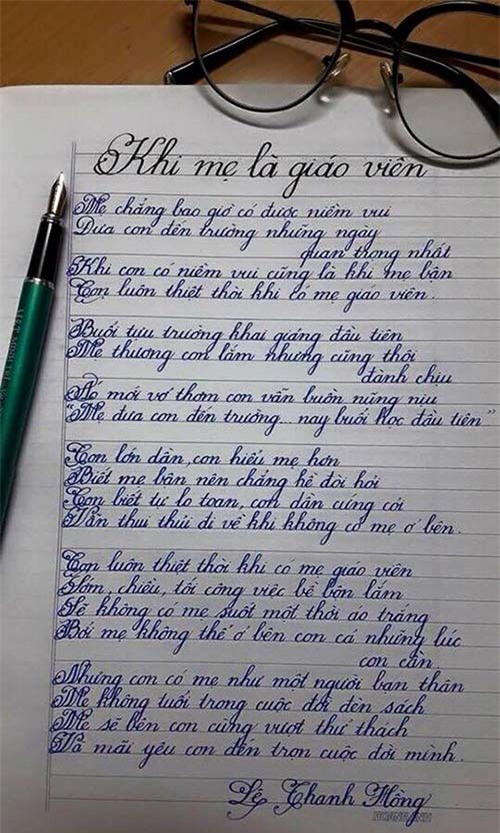 Khi mẹ là giáo viên
Mẹ chẳng bao giờ có được niềm vui
Đưa con đến trường những ngày
quan trọng nhất
Khi con có niềm vui cũng là khi mẹ bận
Con luôn thiệt thòi khi có mẹ giáo viên.
Buổi tựu trường khai giảng đầu tiên
Mẹ thương con lắm nhưng cũng thôi
đành chịu
Áo mới vở thơm con vẫn buồn nũng nịu
"Mẹ đưa con đến trường... nay buổi học đầu tiên"
Con lớn dần, con hiểu mẹ hơn
Biết mẹ bận nên chẳng hề đòi hỏi
Con biết tự lo toan, con dần cứng cỏi
Vẫn thui thủi đi về khi không có mẹ ở bên.
Con luôn thiệt thòi khi có mẹ giáo viên
Sớm, chiều, tối công việc bề bộn lắm
Sẽ không có mẹ suốt một thời áo trắng
Bởi mẹ không thể ở bên con cả những lúc
con cần.
Nhưng con có mẹ như một người bạn thân
Mẹ không tuổi trong cuộc đời đèn sách
Mẹ sẽ bên con cùng vượt thử thách
Và mãi yêu con đến trọn cuộc đời mình.
Lê Thanh Hồng